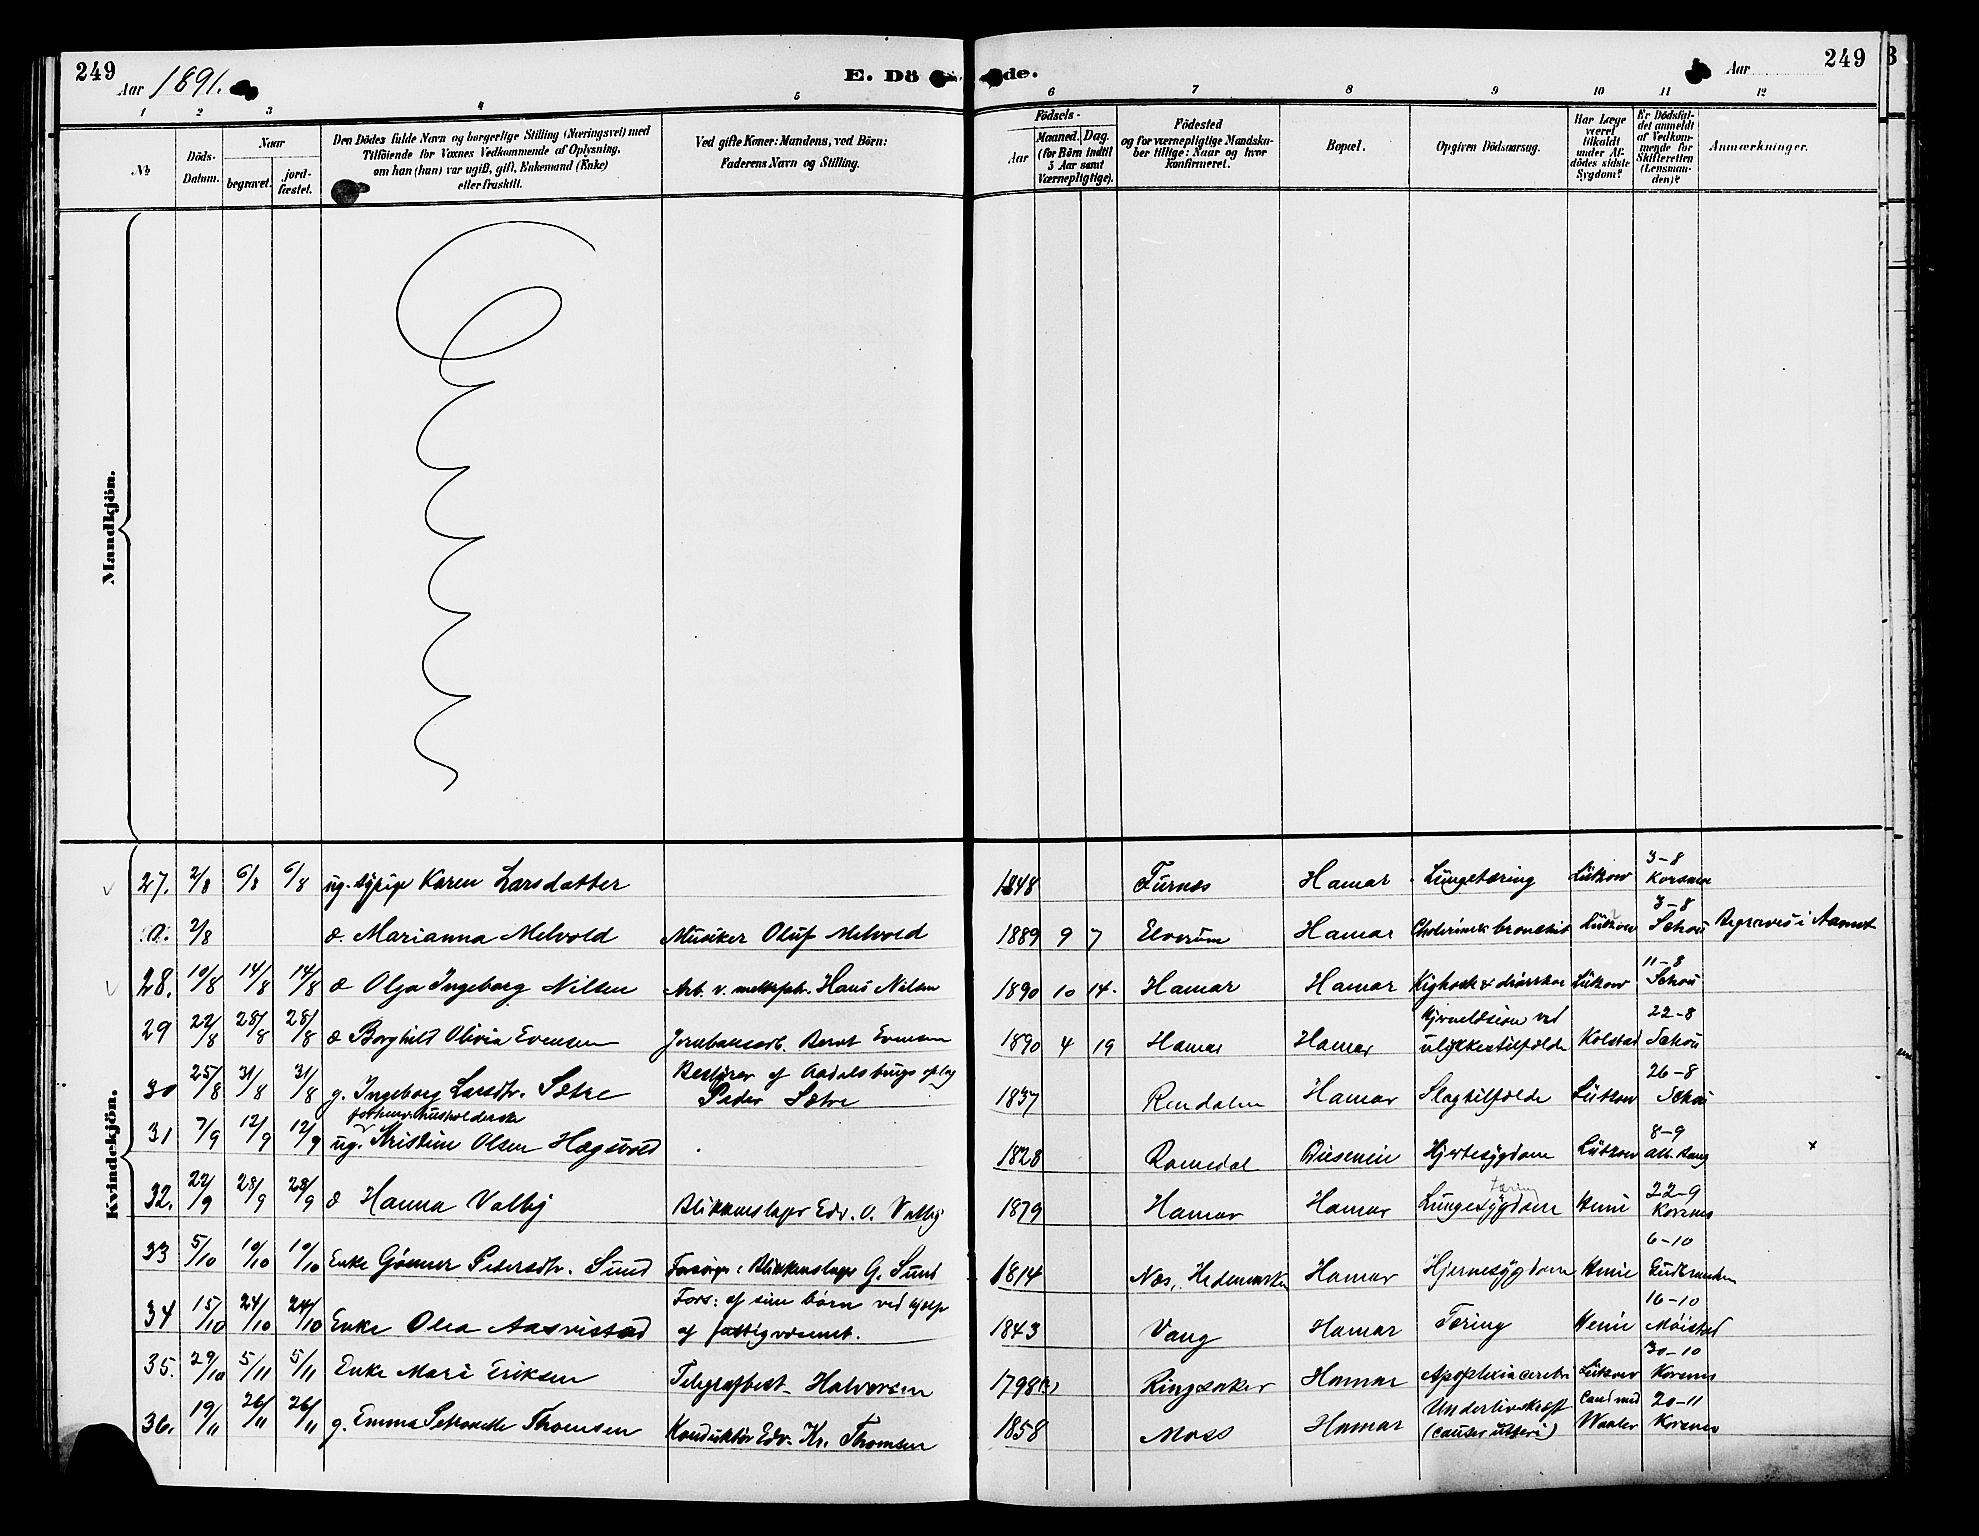 249
Aar 1891.
E. Dö de.
Aar
249
1 2 3 4 5 6 7 8 9 10 11 12
No
Döds-Datum.
Naar
begravet.
jord-fæstet.
Den Dödes fulde Navn og borgerlige Stilling (Næringsvei) med
Tilföiende for Voxnes Vedkommende af Oplysning,
om han (hun) var ugift, gift, Enkemand (Enke)
eller fraskilt.
Ved gifte Koner: Mandens, ved Börn:
Faderens Navn og Stilling.
Födsels-
Aar
Maaned. Dag.
(for Börn indtil
5 Aar samt
Værnepligtige).
Födested
og for værnepligtige Mandska-
ber tillige: Naar og hvor
konfirmeret.
Bopæl.
Opgiven Dödsaarsag.
Har Læge
været
tilkaldt
under Af-
dödes sidste
Sygdom?
Er Dödsfal-
det anmeldt
af Vedkom-
mende for
Skifteretten
(Lensman-
den)?
Anmærkninger.
Mandkjön.
Kvindekjön.
27. 2/8 6/8 6/8 ug. sypige Karen Larsdatter 1848 Furnæs Hamar Lungetæring Lütkow 3-8 Korsmo
a. 2/8 d. Marianna Melvold Musiker Oluf Melvold 1889 9 7 Elverum Hamar Lütkow 3-8 Schou Begraves i Aamot
28. 10/8 14/8 14/8 d Olga Ingeborg Nilsen Arb. v. Hans Nilsen 1890 10 14. Hamar Hamar Kighoste & Lütkow 11-8 Schou
29 22/8 28/8 28/8 d Borghild Olivia Evensen Jernbanearb. Bernt Evensen 1890 4 19 Hamar Hamar ved ulykkestilfælde Kolstad 22-8 Schou
30 25/8 31/8 31/8 g. Ingeborg Larsdtr. Sætre Bestyrer af Aadalsbrugs oplag Peder Sætre 1837 Rendalen Hamar Slagtilfælde Lütkow 26-8 Schou
31 7/9 12/9 12/9 ug. Kristine Olsen Hagsvold 1828 Romedal Hjertesygdom Lütkow 8-9 x
32. 22/9 28/9 28/9 d Hanna Valby Blikkenslager Edv. O. Valby 1879 Hamar Hamar Lungesygdom tæring Henie 22-9 Korsmo
33 5/10 10/10 10/10 Enke Gönner Pedersdtr. Sund Forsörges: Blikkenslager G. Sund 1814 Næs, Hedemarken Hamar Hjernesygdom Henie 6-10 Gudbrandsen
34 15/10 24/10 24/10 Enke Olea Aasvistad Fors: af sine börn ved hjælp af fattigvæsenet. 1843 Vang Hamar Tæring Henie 16-10 Möistad
35. 29/10 5/11 5/11 Enke Mari Eriksen Telegrafbest. Halvorsen 1798(?) Ringsaker Hamar Apoplexia cerebri Lütkow 30-10 Korsmo
36. 19/11 26/11 26/11 g. Emma Petronelle Thomsen Konduktör Edv. Kr. Thomsen 1858 Moss Hamar Underlivskræft (cancer uteri) Cand med Waaler 20-11 Korsmo